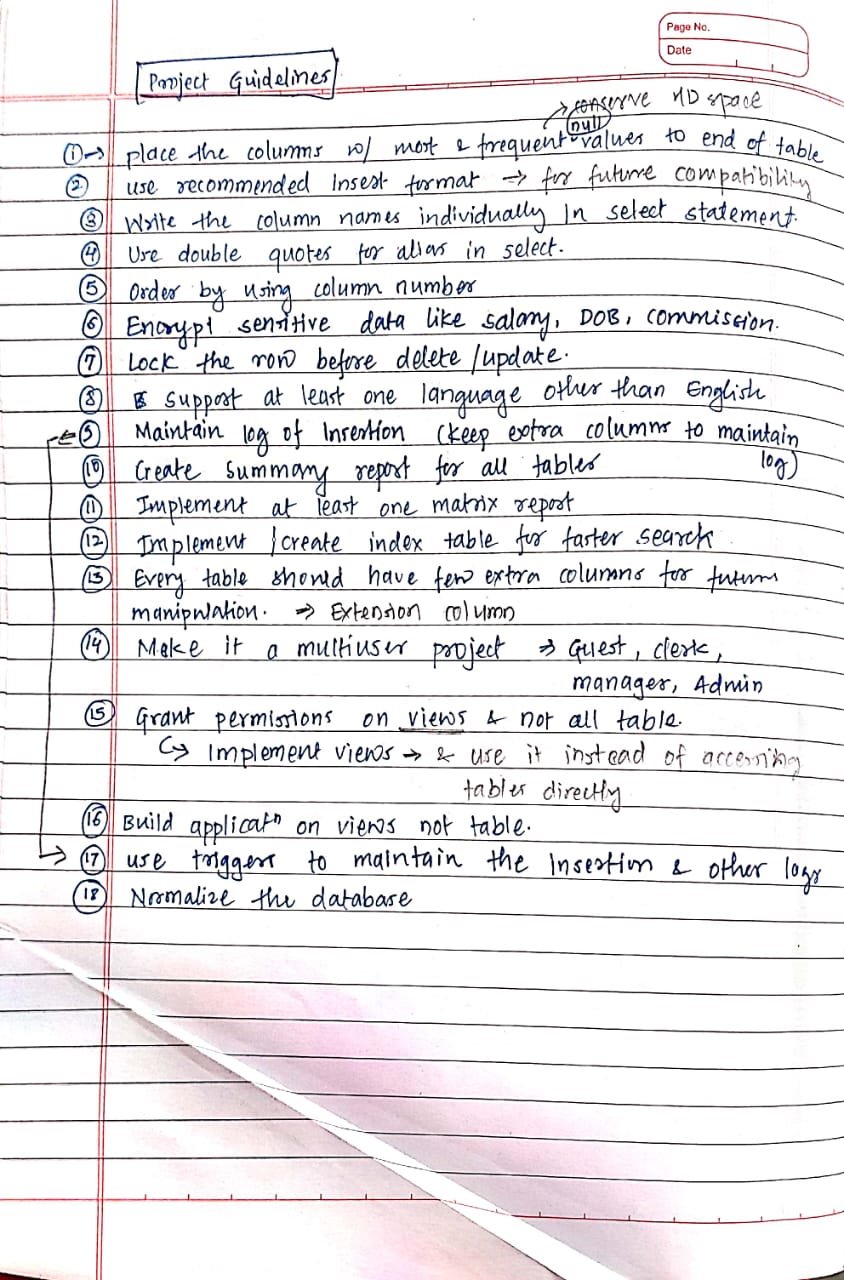 Page No.
Date
Project Guidelines
→ conserve HD space
null
① → place the columns w/ most & frequent values to end of table
② use recommended Insert format → for future compatibility
③ Write the column names individually in select statement.
④ Use double quotes for alias in select.
⑤ Order by using column number
⑥ Encrypt sensitive data like salary, DOB, commission.
⑦ Lock the row before delete /update.
⑧ Support at least one language other than English
⑨ Maintain log of Insertion (keep extra columns to maintain
log)
⑩ Create summary report for all tables
⑪ Implement at least one matrix report
⑫ Implement /create index table for faster search
⑬ Every table should have few extra columns for future
manipulation. ⇒ Extension column
⑭ Make it a multiuser project → Guest, clerk,
manager, Admin
⑮ Grant permissions on views & not all table.
↪ Implement views → & use it instead of accessing
tables directly
⑯ Build applicatⁿ on views not table.
⑰ use triggers to maintain the Insertion & other logs
⑱ Normalize the database